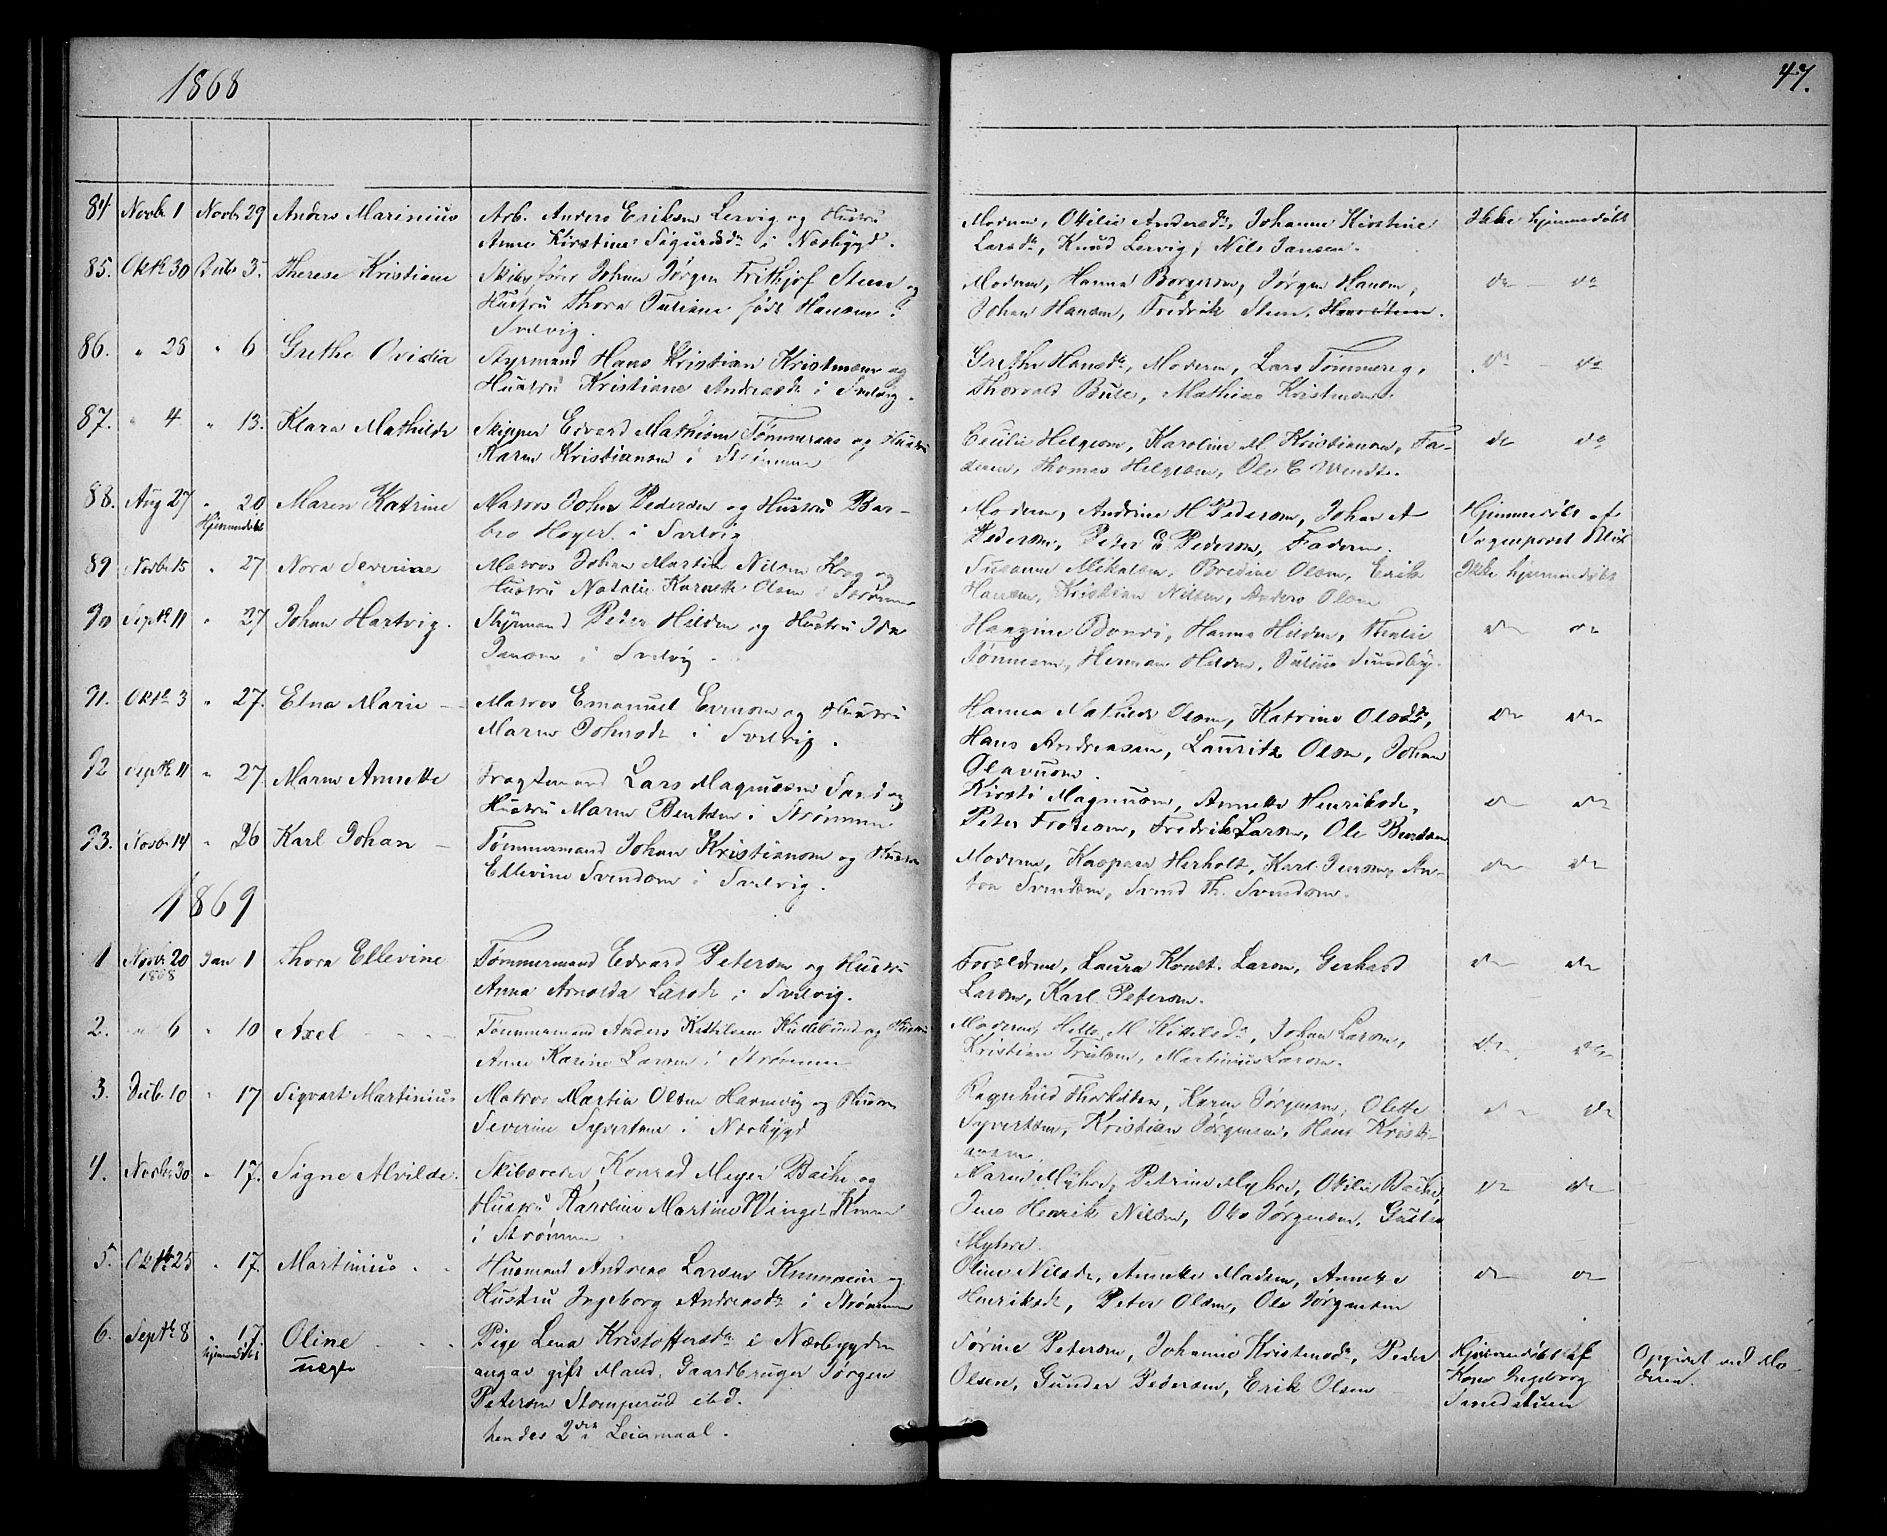 1868
47.
84 Novbr 1 Novbr 29 Anders Marinius Arb. Anders Eriksen Lervig og Hustru
Anne Kirstine Sigurdsdr i Nesbygd.
Modern, Otilie Andersdr, Johanne Kirstine
Larsdr, Knud Lervig, Nils Jansen.
Ikke hjemmedøbt
85. Oktbr 30 Decbr 3. Therese Kristiane Skibsfører Johan Jørgen Frithjof Steen og
Hustru Thora Juliane født Hansen i
Svelvig.
Modern, Hanna Borgersen, Jørgen Hansen,
Johan Hansen, Fredrik Steen.
do do
86. " 25 " 6 Grethe Ovidia Styrmand Hans Kristian Kristensen og
Hustru Kristiane Andersdr i Svelvig.
Grethe Hansdr, Modern, Lars Tømmereg,
Thorvald Buse, Mathias Kristensen.
do do
87. " 4 " 13. Klara Mathilde Skipper Edvard Mathisen Tømmeraas og Hustru
Karen Kristiansen i Strømmen
Cecilie Helgesen, Karoline M Kristiansen, Fa-
deren, Thomas Helgesen, Ole C Wendt.
do do
88. Aug 27 " 20 Maren Katrine Matros Johan Pedersen og Hustru Bar-
Hjemmedøbt
bro Høyer i Svelvig
Modern, Andrine H Pedersen, Johan A
Pedersen, Peter C Pedersen, Fadern.
Hjemmedøbt af
Sogneprest Blix
89 Novbr 15 " 27 Nora Severine Matros Johan Martin Nilsen Krog og
Hustru Natalie Karnette Olsen i Strømmen
Susanne Mikalsen, Bredine Olsen, Erik
Hansen, Kristian Nilsen, Anders Olsen
Ikke hjemmedøbt
90 Septbr 11 " 27 Johan Hartvig. Styrmand Peder Hilden og Hustru Ida
Jansen i Svelvig.
Hangine Bondi, Hanna Hilden, Thalie
Tønnesen, Herman Hilden, Julius Sundby.
do do
91. Oktbr 3 " 27. Elna Marie Matros Emanuel Evensen og Hustru
Maren Johnsdr i Svelvig.
Hanna Matilde Olsen, Katrine Olsdr,
Hans Andreasen, Lauritz Olsen, Johan
Olavesen.
do do
92 Septbr 11 " 27 Maren Annette Fragtemand Lars Magnussen Sand og
Hustru Maren Bentsen i Strømmen
Kirsti Magnusen, Annette Henriksdr,
Peter Frodesen, Fredrik Larsen, Ole Bentsen
do do
93. Novbr 14 " 26 Karl Johan Tømmermand Johan Kristiansen og Hustru
Ellevine Svendsen i Svelvig.
Modern, Kaspara Herholt, Karl Jensen, An-
ton Svendsen, Svend Th. Svendsen.
do do
1869
1 Novbr 20 Jan 1 Thora Ellevine Tømmermand Edvard Petersen og Hustru
1868
Anna Arnolda Larsdr i Svelvig.
Forældrene, Laura Konst. Larsen, Gerhard
Larsen, Karl Petersen.
do do
2. " 6 " 10 Axel Tømmermand Anders Kittilsen Kudebund og Hustru
Anne Karine Larsen i Strømmen
Modern, Helle M Kittilsdr, Johan Larsen,
Kristian Trulsen, Martinius Larsen.
do do
3. Decbr 10 " 17 Sigvart Martinius Matros Martin Olsen Havnevig og Hustru
Severine Syvertsen i Nesbygd
Ragnhild Thorkilsen, Karen Jørgensen, Olette
Syvertsen, Kristian Jørgensen, Hans Kristi-
ansen.
do do
4. Novbr 30 " 17. Signe Alvilde. Skibsreder Konrad Meyer Bache og
Hustru Karoline Martine Winge
i Strømmen
Maren Myhre, Petrine Myhre, Otilie Bache,
Jens Henrik Nilsen, Otto Jørgensen, Gustav
Myhre.
do do
5. Oktbr 25 " 17. Martinius Husmand Andreas Larsen og
Hustru Ingeborg Andreasdr i Strømmen
Oline Nilsdr, Annette Madsen, Annette
Henriksdr, Peter Olsen, Ole Jørgensen
do do
6. Septbr 8 " 17. Oline Pige Lena Kristoffersdr i Næsbygden
hjemmedøbt
uægte
angav gift Mand, Gaardbruger Jørgen
Petersen Stomperud ibd.
hendes 2det Leiermaal.
Sørine Petersen, Johanne Kristensdr, Peder
Olsen, Gunder Pedersen, Erik Olsen
Hjemmedøbt af
Kone Ingeborg
Smedstuen
Opgivet ved Mo-
deren.